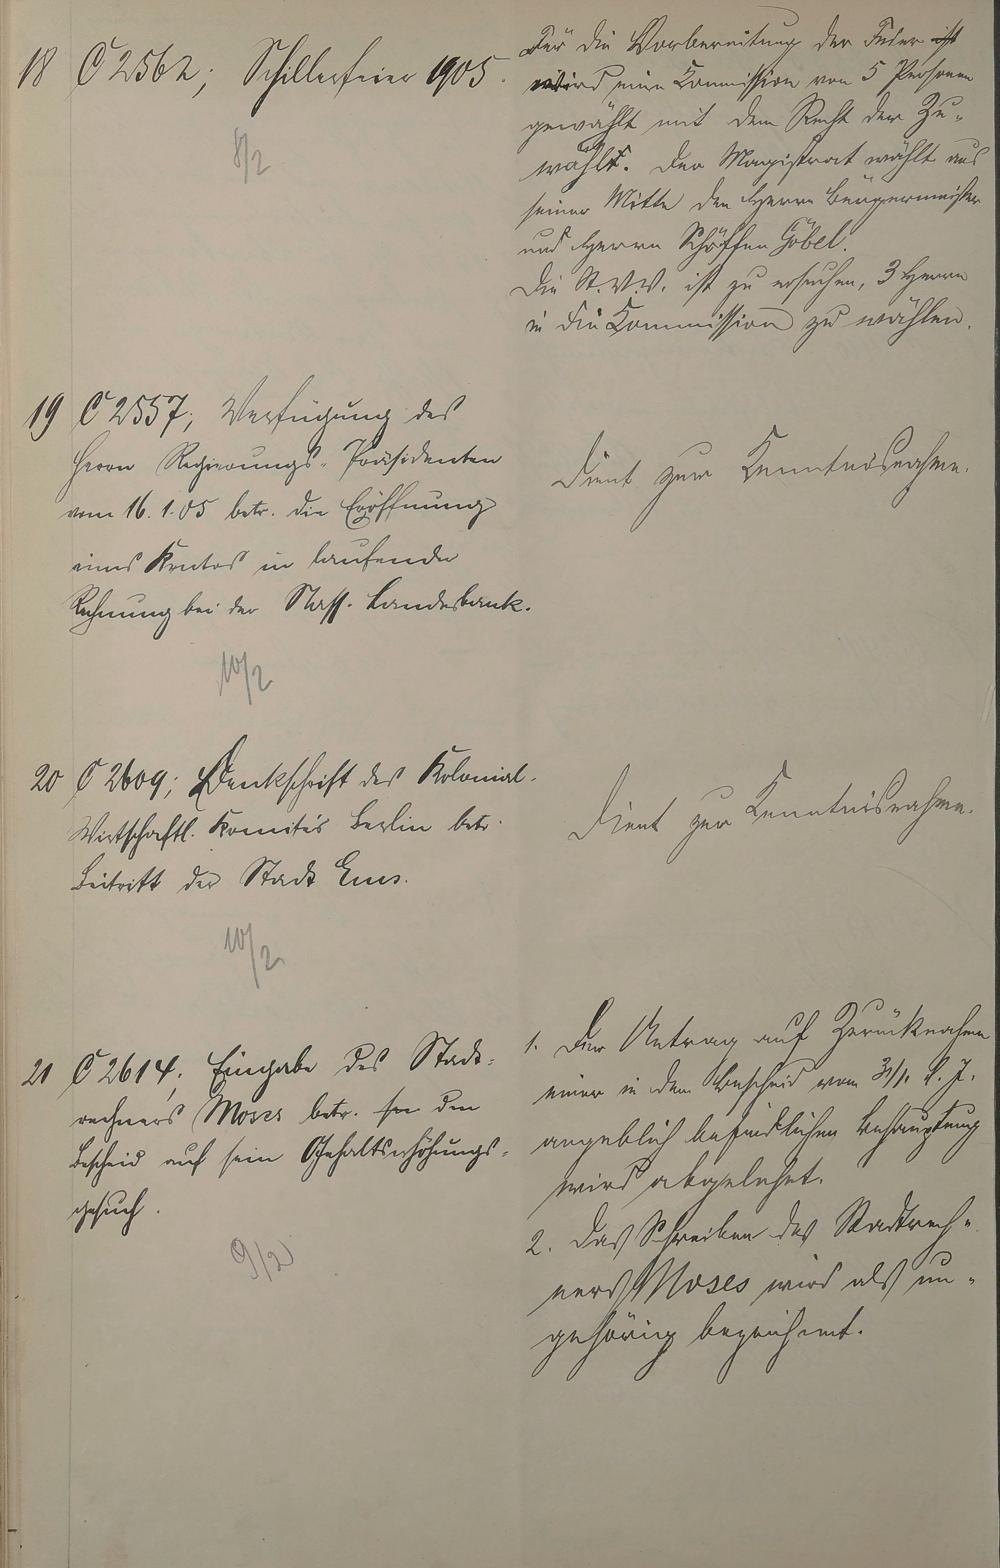 18 C 2562; Schillerfeier 1905.
8/2
Für die Vorbereitung der Feier ist
wird eine Kommission von 5 Personen
gewählt mit dem Recht der Zu-
wahl. Der Magistrat wählt aus
seiner Mitte den Herrn Bürgermeister
und Herrn Schöffen Göbel.
Die St.V.V. ist zu ersuchen, 3 Herrn
in die Kommission zu wählen.
19 C 2557; Verfügung des
Herrn Regierungs-Präsidenten
vom 16.1.05 betr. die Eröffnung
eines Kontos in laufender
Rechnung bei der Nass. Landesbank.
10/2
Dient zur Kenntnisnahme.
20 C 2609; Denkschrift des Kolonial-
Wirtschaftl. Komités Berlin betr.
Beitritt der Stadt Ems.
10/2
Dient zur Kenntnisnahme.
21 C 2614; Eingabe des Stadt-
rechners Moses betr. den
Bescheid auf sein Gehaltserhöhungs-
gesuch.
9/2
1. Der Antrag auf Zurücknahme
einer in dem Bescheid vom 31/1. l. J.
angeblich befindlichen Behauptung
wird abgelehnt.
2. Das Schreiben des Stadtrech-
ners Moses wird als un-
gehörig bezeichnet.